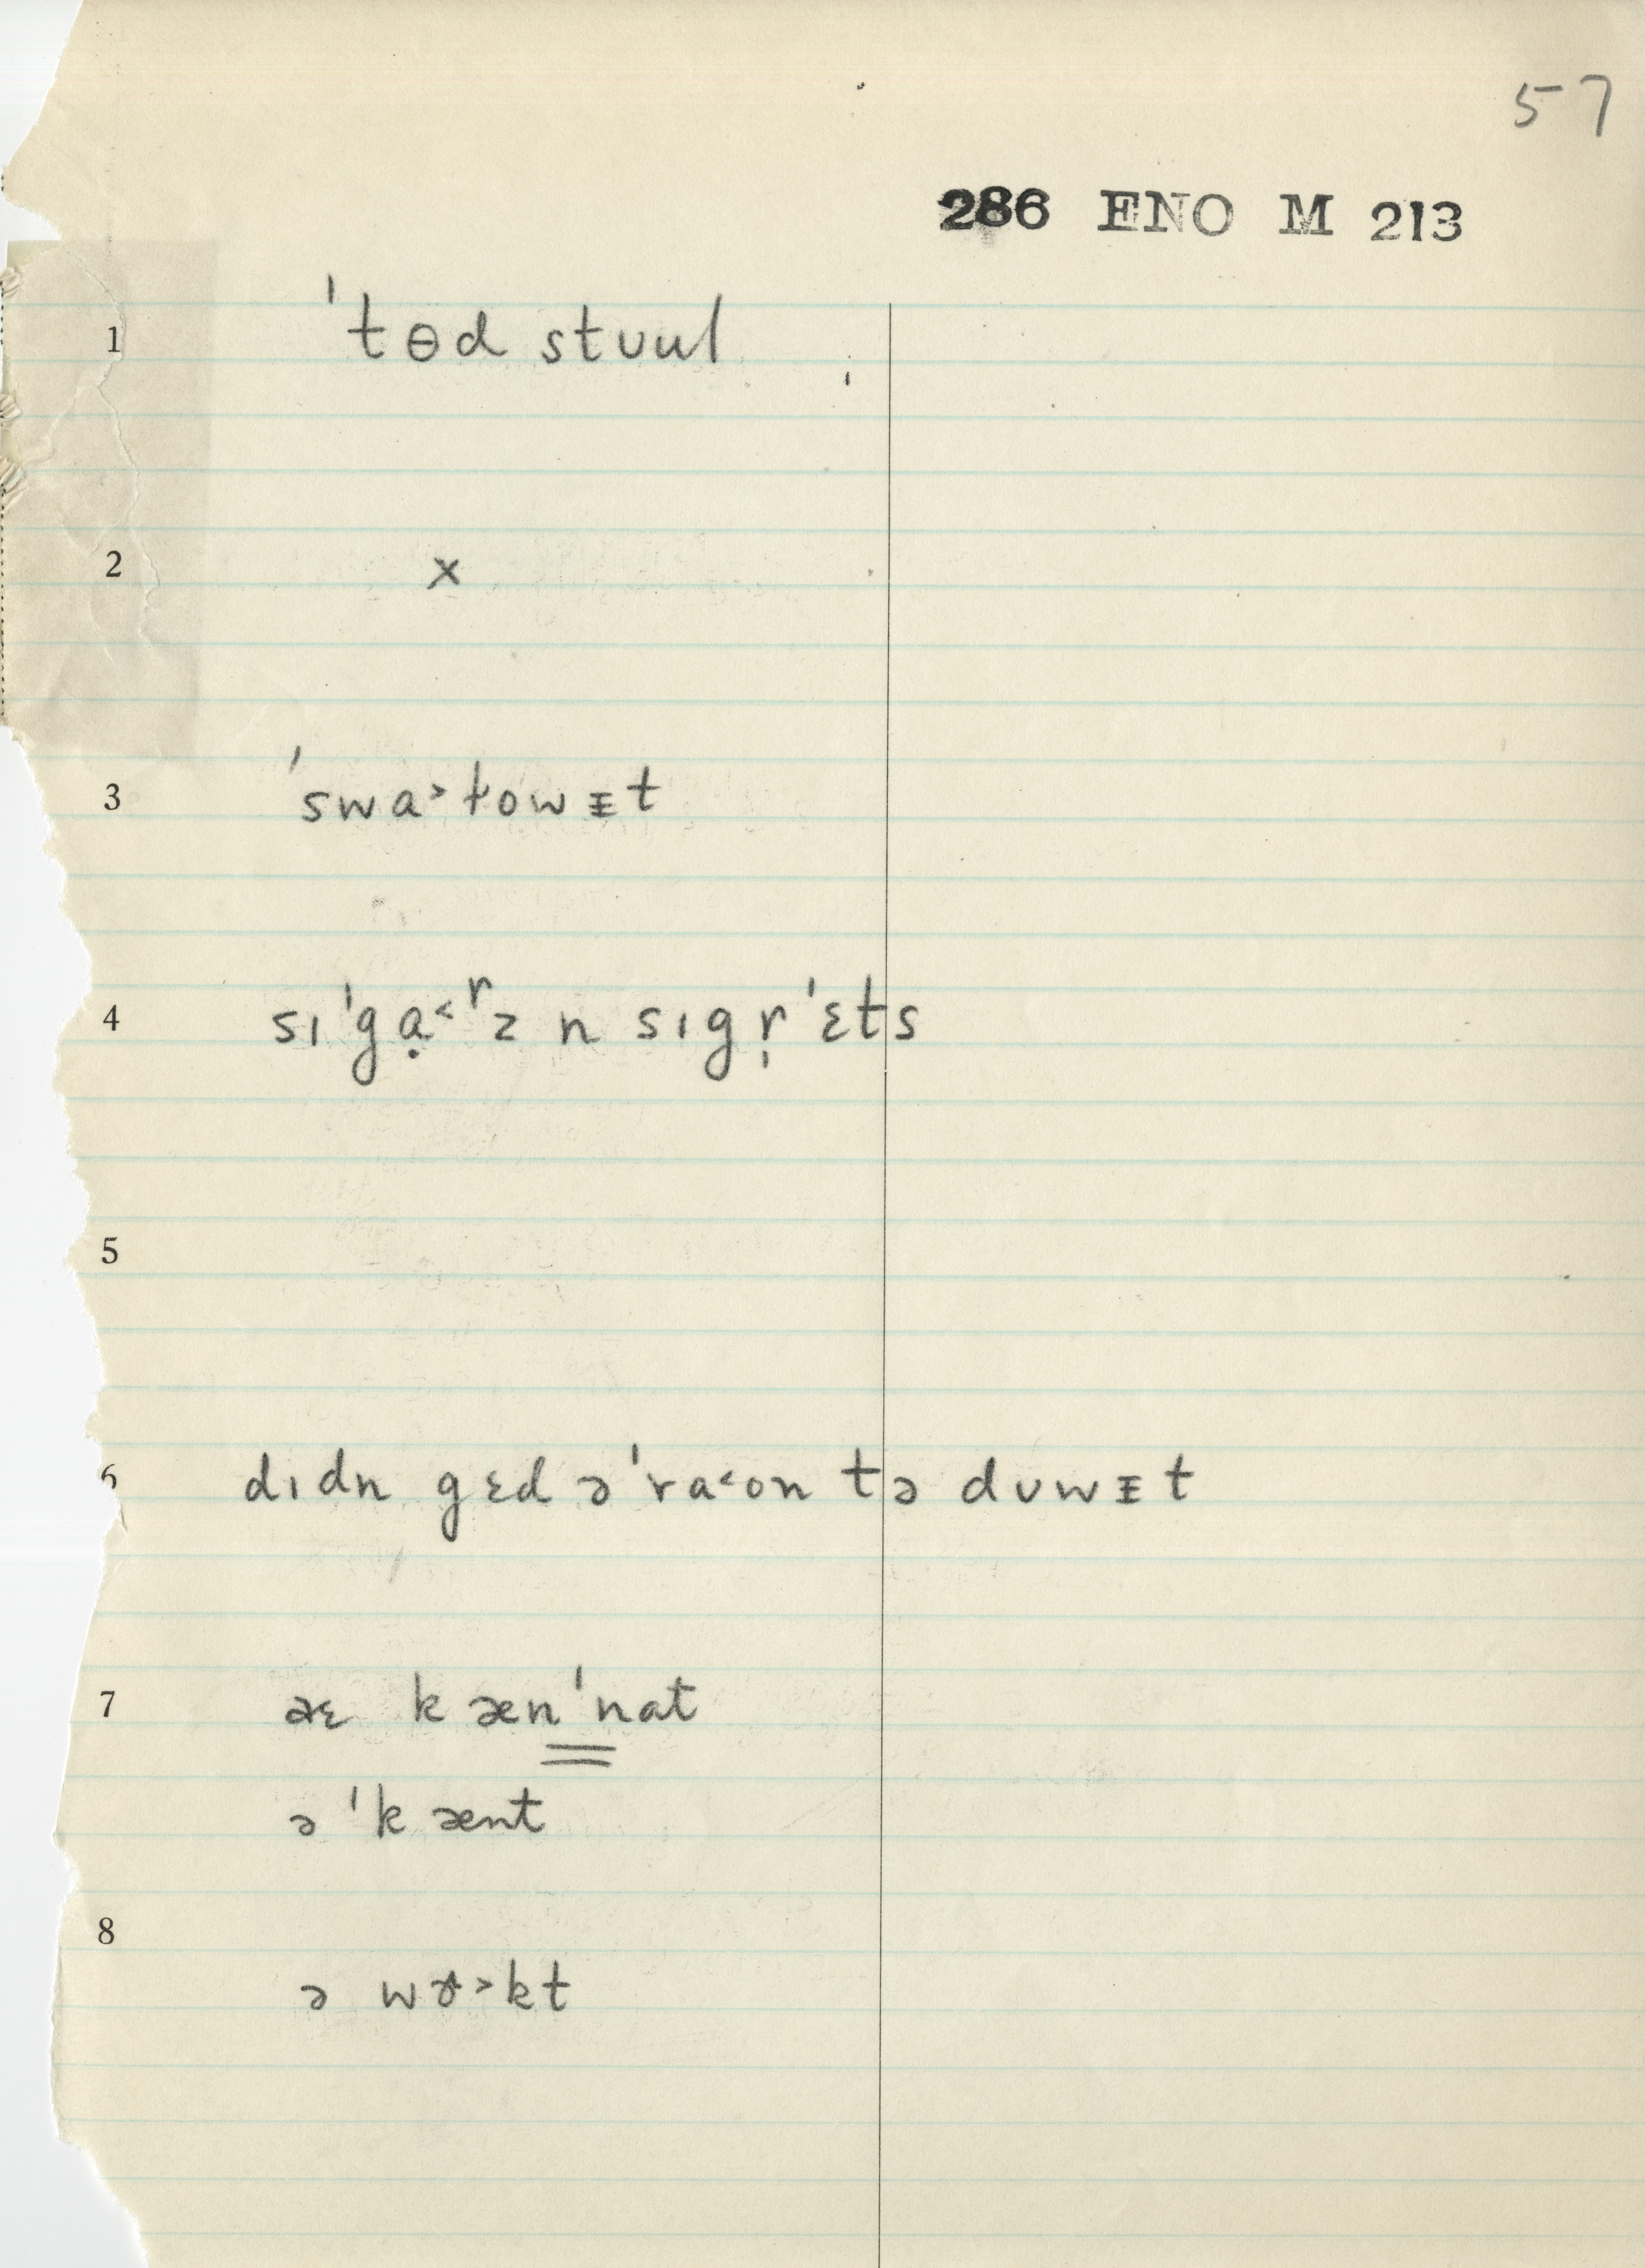 57
286 ENO M 213
1 ˈtɵd stʊul
2 x
3 ˈswɑ˃t̬owᵻt
4 sɪˈgɑ̣˂ʳz n sɪgr̩ˈɛts
5
6 dɪdn gɛd əˈrɑ˂on tə dʊwᵻt
7 æɛ kænˈnat
əˈkænt
8 ə wɤ˃kt